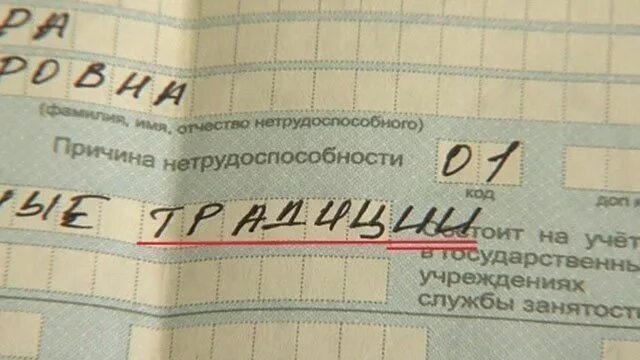 РА
РОВНА
(фамилия, имя, отчество нетрудоспособного)
Причина нетрудоспособности 01
код
доп
НЫЕ ТРАДИЦИИ
Состоит на учёт
в государственны
учреждениях
службы занятост